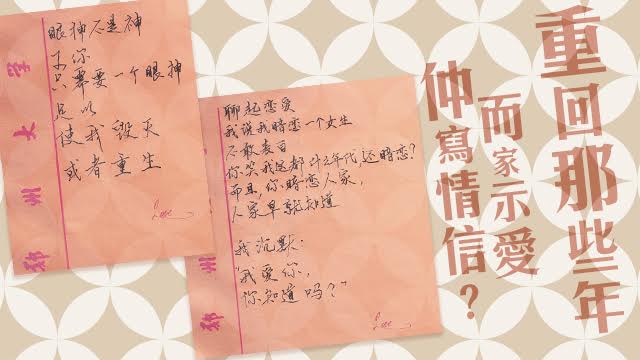 郑州大学
眼神不是神
你
只需要一个眼神
足以
使我毁灭
或者重生
郑州
聊起恋爱
我说我暗恋一个女生
不敢表白
你笑我这都什么年代还暗恋?
而且,你暗恋人家,
人家早就知道
我沉默:
"我爱你,
你知道吗?"
重回那些年
而家示愛
仲寫情信?